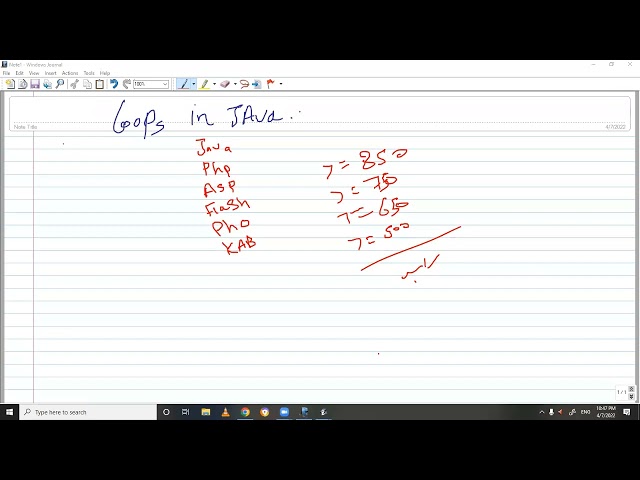 Note1 - Windows Journal
File Edit View Insert Actions Tools Help
100%
Loops in JAva ..
Note Title
4/7/2022
Java
Php
ASP
Flash
Pho
KAB
>= 850
>= 750
>= 650
>= 500
1 / 1
Type here to search
ENG
10:47 PM
4/7/2022